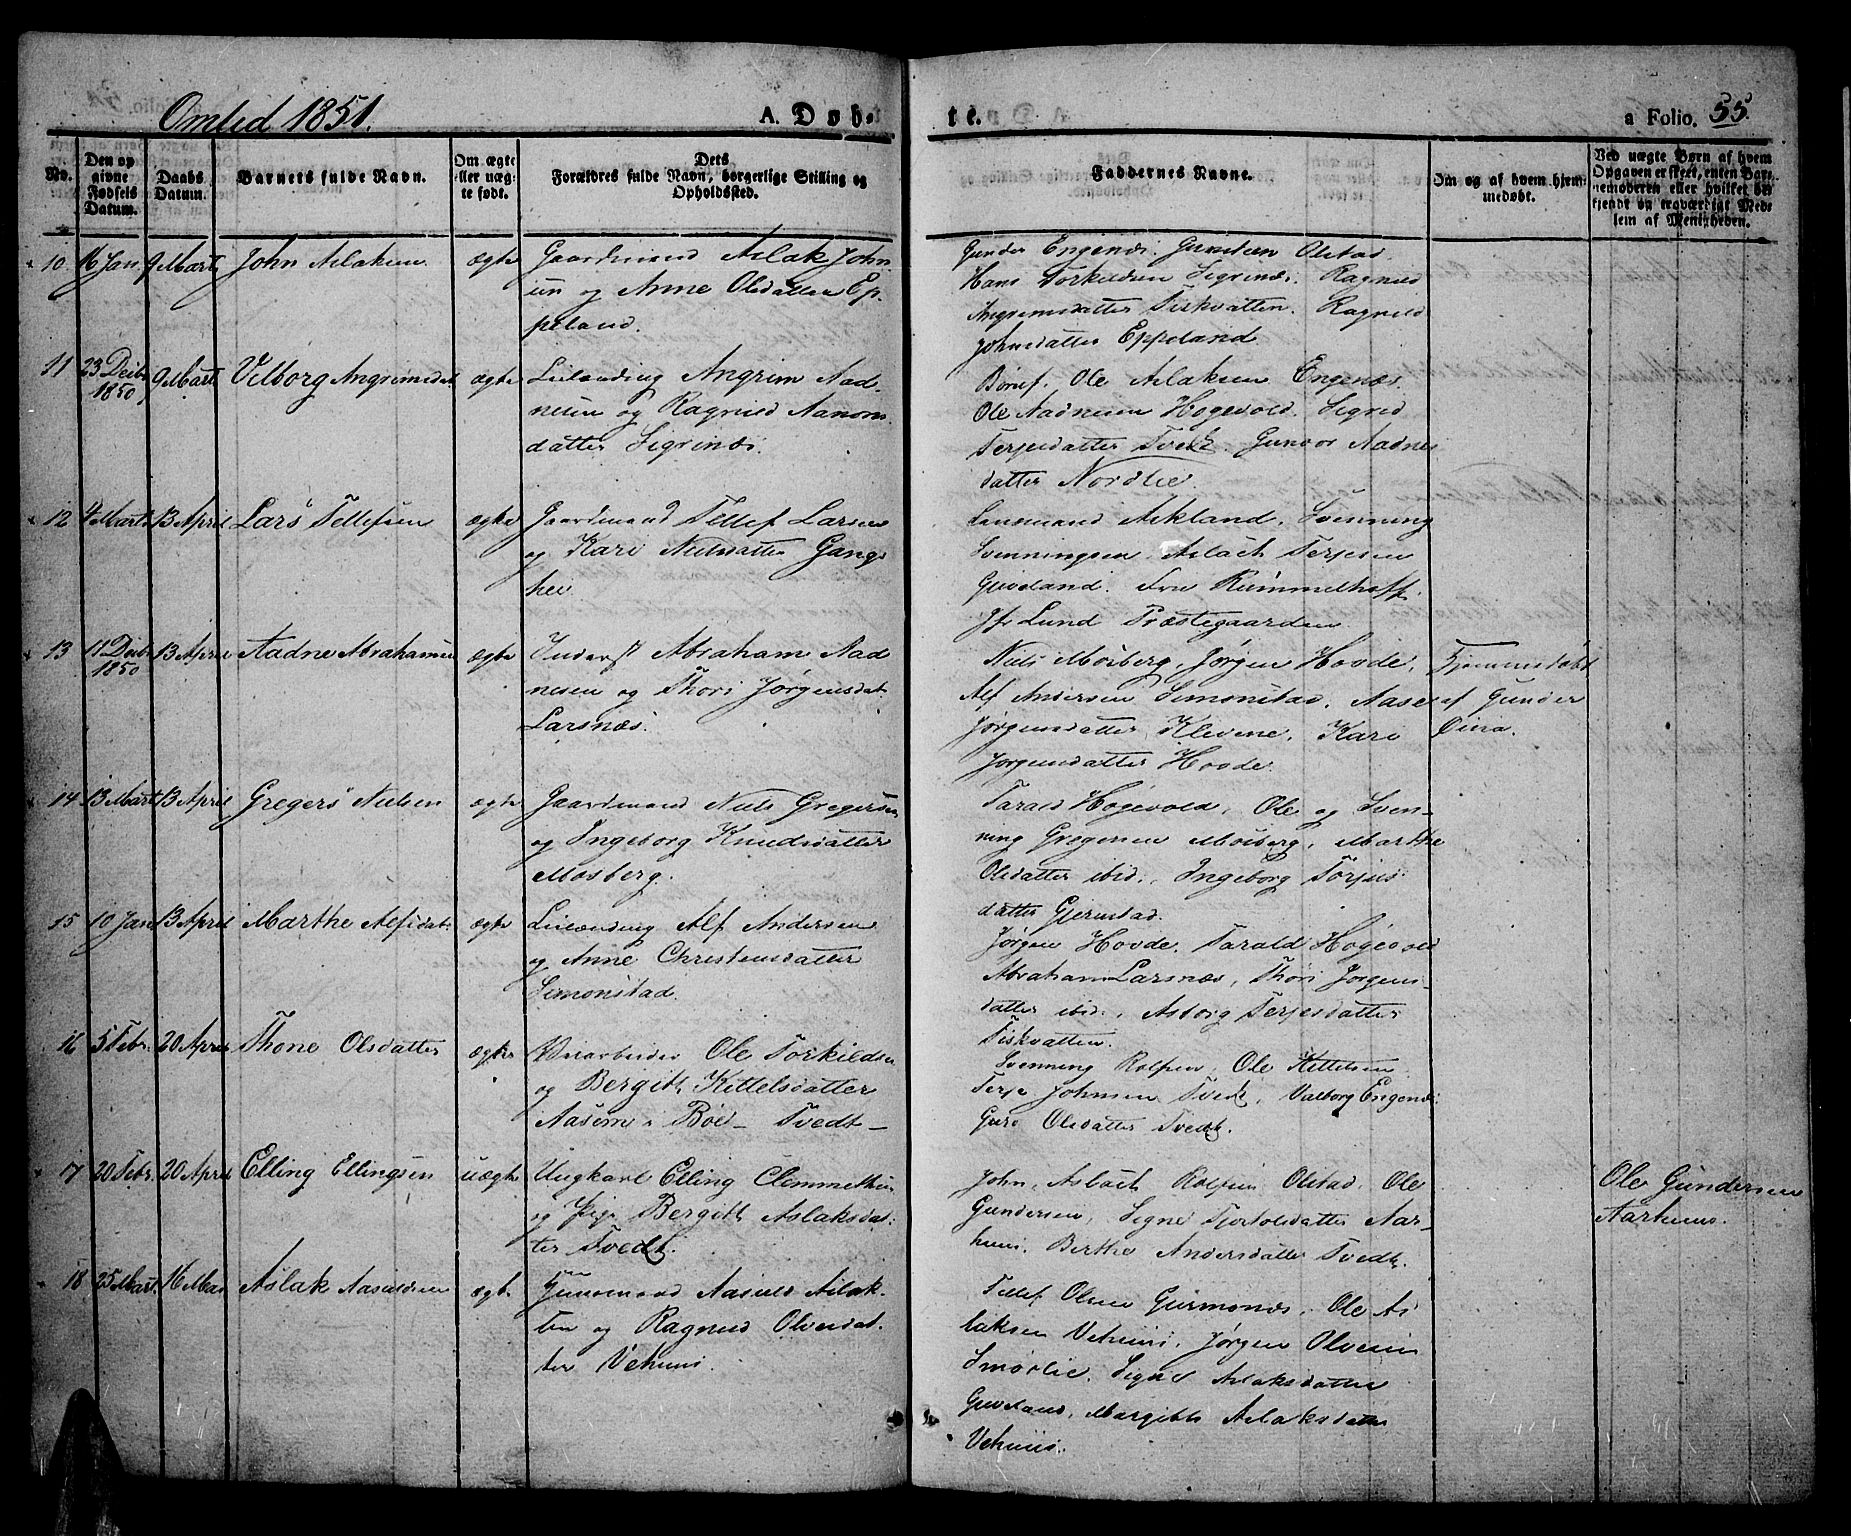 Omlid 1851.
A. Døb-
te.
a Folio. 55.
No.
Den op
givne
Fødsels
Datum.
Daabs
Datum.
Barnets fulde Navn.
Om ægte
eller uæg-
te født.
Dets
Forældres fulde Navn, borgerlige Stilling og
Opholdssted.
Faddernes Navne.
Om og af hvem hjem-
medøbt.
Ved uægte Børn af hvem
Opgaven er skeet, enten Bar-
nemoderen eller hvilket be-
kjendt og troværdigt Med-
lem af Menigheden.
10 16 Jan. 9 Marts John Aslaksen ægte Gaardmand Aslak John
sen og Anne Olsdatter Ep
peland.
Gunder Engenæs. Gunsteen Olstad.
Hans Torkildsen Sigrinæs. Ragnild
Angrimsdatter Fiskvatten. Ragnild
Johnsdatter Eppeland
11 23 Decbr 1850 9 Marts Velborg Angrimsdat. ægte Leilænding Angrim Aad-
nesen og Ragnild Aanons
datter Sigrinæs.
Ole Aslaksen Engenæs.
Ole Aadnesen Hogevold. Sigrid
Terjesdatter Tvedt. Gunvor Aadnes
datter Nordlie.
12 4 Marts 13 April Lars Tellefsen ægte Gaardmand Tellef Larsen
og Kari Nielsdatter Gangs
hei
Lensmand Askland. Svenning
Svenningsen, Aslach Terjesen
Gjøveland. Fru Rummelhoff.
Jfr Lund Præstegaarden
13 11 Decbr 1850 13 April Aadne Abrahamsen ægte Inderst Abraham Aad
nesen og Thori Jørgensdat.
Larsnæs.
Niels Mosberg, Jørgen Hovde,
Alf Andersen Simonstad, Aase
Jørgensdatter Klevene, Kari
Jørgensdatter Hovde.
Hjemmedøbt
af Gunder
14 13 Marts 13 April Gregers Nielsen ægte Gaardmand Niels Gregersen
og Ingeborg Knudsdatter
Mosberg.
Tarald Høgevold, Ole og Sven-
ning Gregersen Mosberg, Marthe
Olsdatter ibid., Ingeborg Torjus-
datter Gjermstad.
15 10 Jan. 13 April Marthe Alfsdat. ægte Leilænding Alf Andersen
og Anne Christensdatter
Simonstad.
Jørgen Hovde. Tarald Høgevold
Abraham Larsnæs, Thori Jørgens-
datter ibid., Asborg Terjesdatter
Fiskvatten.
16 5 Febr. 20 April Thone Olsdatter ægte Veiarbeider Ole Torkildsen
og Bergith Kittelsdatter
Aasem i Bøe - Tvedt -
Svenning Rolfsen, Ole Kittelsen
Terje Johnsen Tvedt, Valborg Engenæs
Guro Olsdatter Tvedt.
17 20 Febr. 20 April Elling Ellingsen uægte Ungkarl Elling Clemmetsen
og Pige Bergith Aslaksdat-
ter Tvedt.
John, Aslach Rolfsen Olstad. Ole
Gundersen, Signe Fjertolsdatter Aar-
huus. Berthe Andersdatter Tvedt.
Ole Gundersen
Aarhuus.
18 25 Marts 16 Mai Aslak Aasuldsen ægte Huusmand Aasuld Aslak-
sen og Ragnild Olvesdat-
ter Vehuus.
Tellef Olsen Gurmonæs, Ole As
laksen Vehuus, Jørgen Olvesen
Smørlie. Signe Aslaksdatter
Gjøveland, Margith Aslaksdatter
Vehuus.